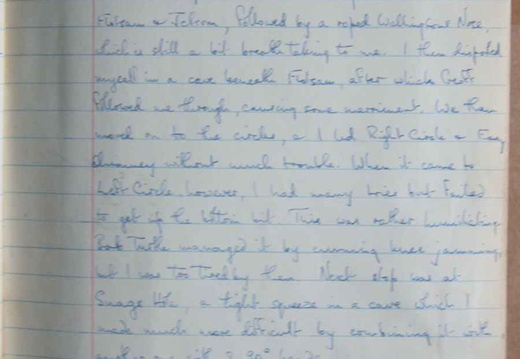 Flotsam & Jetsom, followed by a roped Wellington's Nose,
which is still a bit breath taking to me. I then disposed
myself in a cave beneath Flotsam, after which Geoff
followed me through, causing some merriment. We then
moved on to the circles, & I led Right Circle & Easy
Chimney without much trouble. When it came to
Left Circle, however, I had many tries but failed
to get up the bottom bit. This was rather humiliating.
Bob Tuttle managed it by cunning knee jamming,
but I was too tired by then. Next stop was at
Sewage Hole, a tight squeeze in a cave which I
made much more difficult by combining it with
another one with 2 90° bends